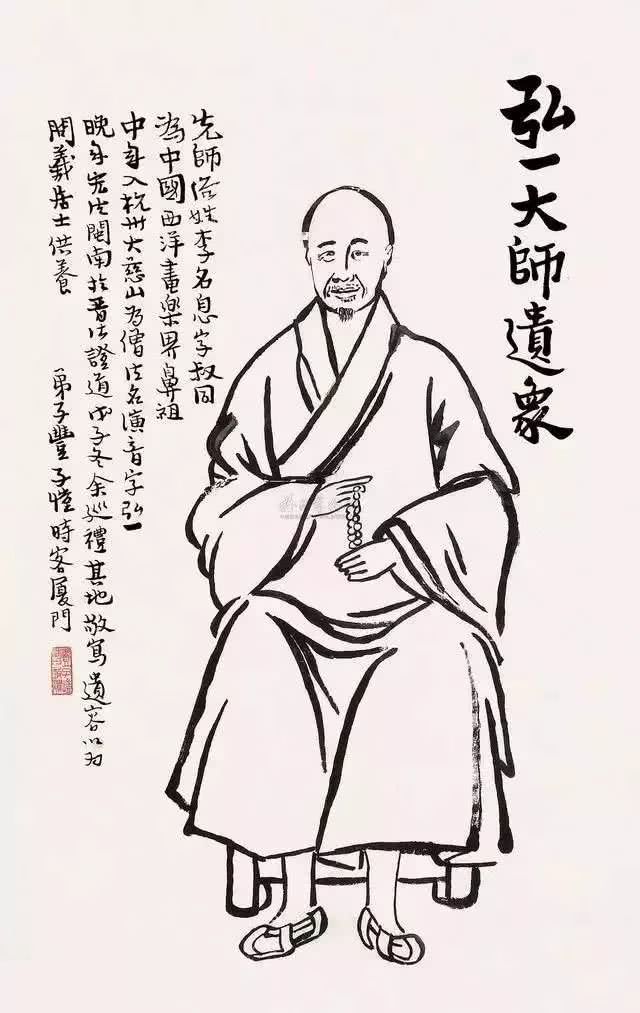 弘一大師遺象
先師俗姓李名息字叔同
為中國西洋畫樂界鼻祖
中年入杭州大慈山為僧法名演音字弘一
晚年宏法閩南於晋江證道戊子冬余巡禮其地敬寫遺容以為
開義居士供養 弟子豐子愷時客厦門